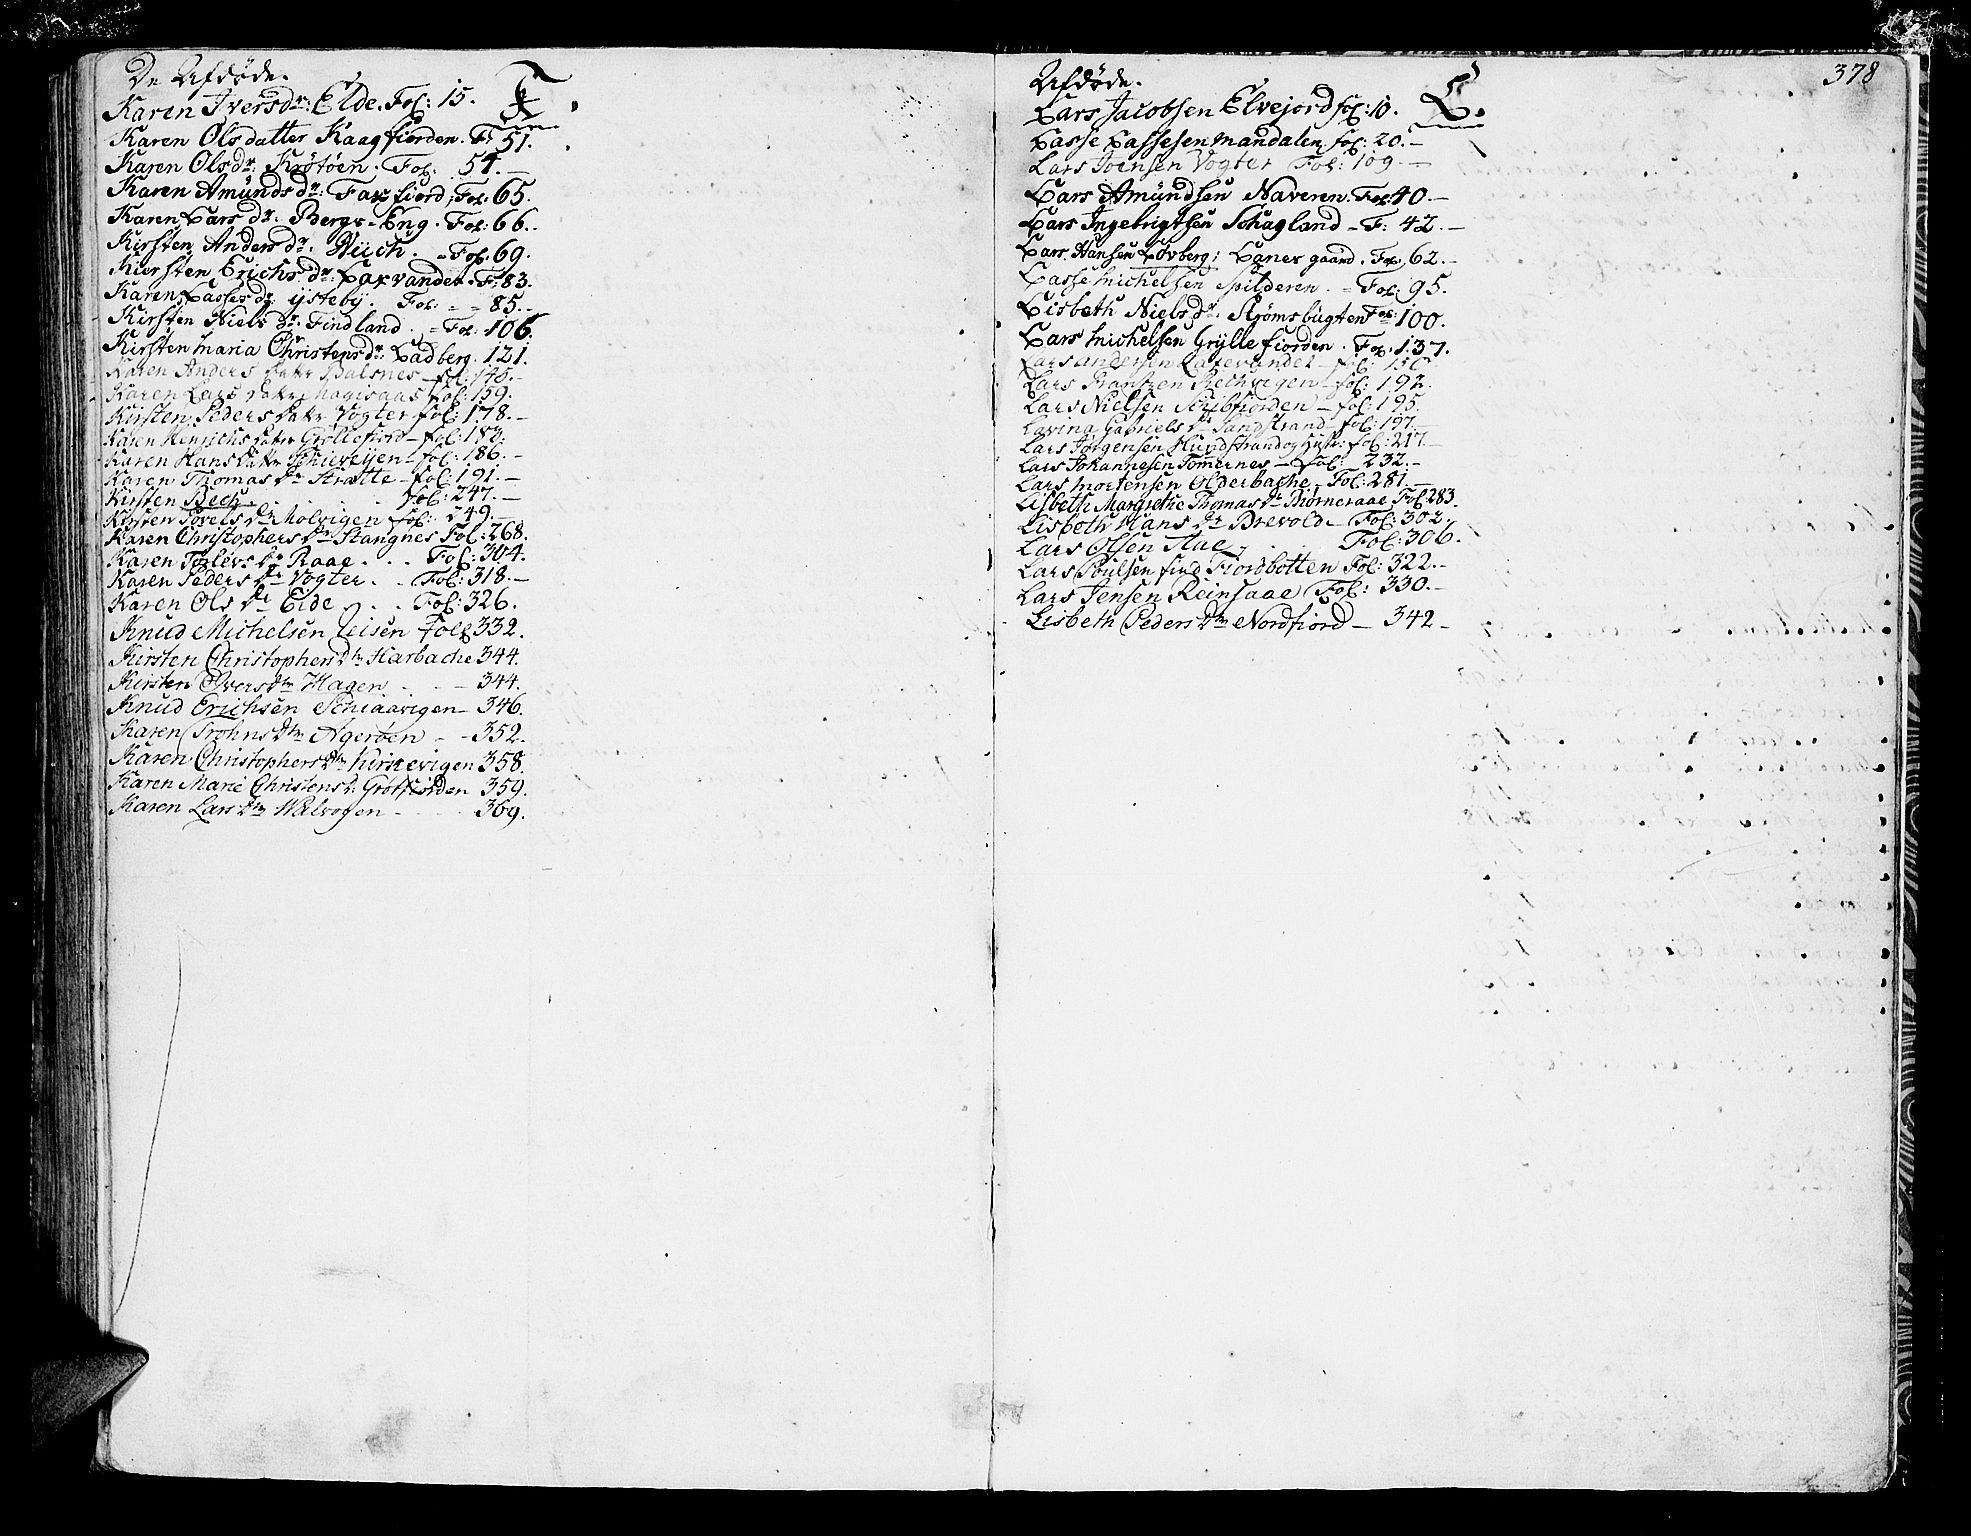 De Afdøde.
K.
Karen Iversdr: Elde. Fol: 15.
Karen Ols datter Kaagfiorden. F: 51.
Karen Olsdr: Krøtöen. Fol: 54.
Karen Amünds dr: Fax fiord, Fol: 65.
Karen Lars dr. Bergs-Eng. Fol: 66.
Kirsten Anders dr. Fol. 69.
Kiersten Erichs dr: Laxvandet. F: 83.
Karen Lasses dr. ÿstebÿ. Fol: - - 85.
Kirsten Niels dr. Findland. - Fol: 106.
Kirsten maria Christensdr: Ladberg. 121.
Karen Anders datr Balsnes - fol: 145.
Karen Lars datr fol: 159.
Kirsten Peders datr Vogter fol: 178.
Karen Henrichs datr Grøttefiord - fol: 183.
Karen Hans datr - fol: 186.
Karen Thomas dr Stratte - fol: 191.
Kirsten Bech . . . fol: 247.
Kirsten Povels dr Molvigen fol: 249.
Karen Christophers dr Stangnes Fol: 268.
Karen Torlevs dr Raae . . . Fol: 304.
Karen Peders dr Vogter . . Fol: 318.
Karen Ols dr Eide . . . Fol: 326.
Knud Michelsen Leisen Fol 332.
Kirsten Christophers dtr Harbache 344.
Kirsten Elvers dtr Hagen - - - 344.
Knud Erichsen Schiaavigen - 346.
Karen Trohns dtr Agerøen - - 352.
Karen Christophers dtr Kirsevigen 358.
Karen Marie Christens d: Grotfiorden 359.
Karen Lars dtr Walvogen - - - 369.
378
Afdøde.
L.
Lars Jacobsen Elvejord fol: 10.
Lasse Lassesen mandalen fol: 20.
Lars Joensen Vogter Fol: 109
Lars Amündsen Naveren. Fol: 40.
Lars Ingebrigtsen Schagland - F: 42.
Lars Hansen Løvberg; Laner gaard. Fol, 62.
Lasse michelsen Spilderen. - Fol: 95.
Lisbeth Nielsdr. Skjømsbügten Fol: 100.
Lars michelsen Grÿlle fiorden. Fol. 137.
Lars andersen Laxevandet - fol: 150
Lars Frantzen Rechvigen - fol: 192.
Lars Nielsen Schibfiorden - fol: 195.
Lavina Gabriels dr Sandstrand - fol: 197.
Lars Jørgensen Hundstrand og fol: 217.
Lars Johannesen Tomernes - fol: 232.
Lars mortensen Olderbache - Fol: 281.
Lisbeth Margrethe Thomas dr Biørneraae Fol: 283.
Lisbeth Hans dr Brevold - Fol: 302.
Lars Olsen Aae . . . Fol: 306.
Lars Poulsen find Fiordbotten Fol: 322.
Lars Jensen Reinsaae Fol: 330.
Lisbeth Peders dtr Nordfiord - 342